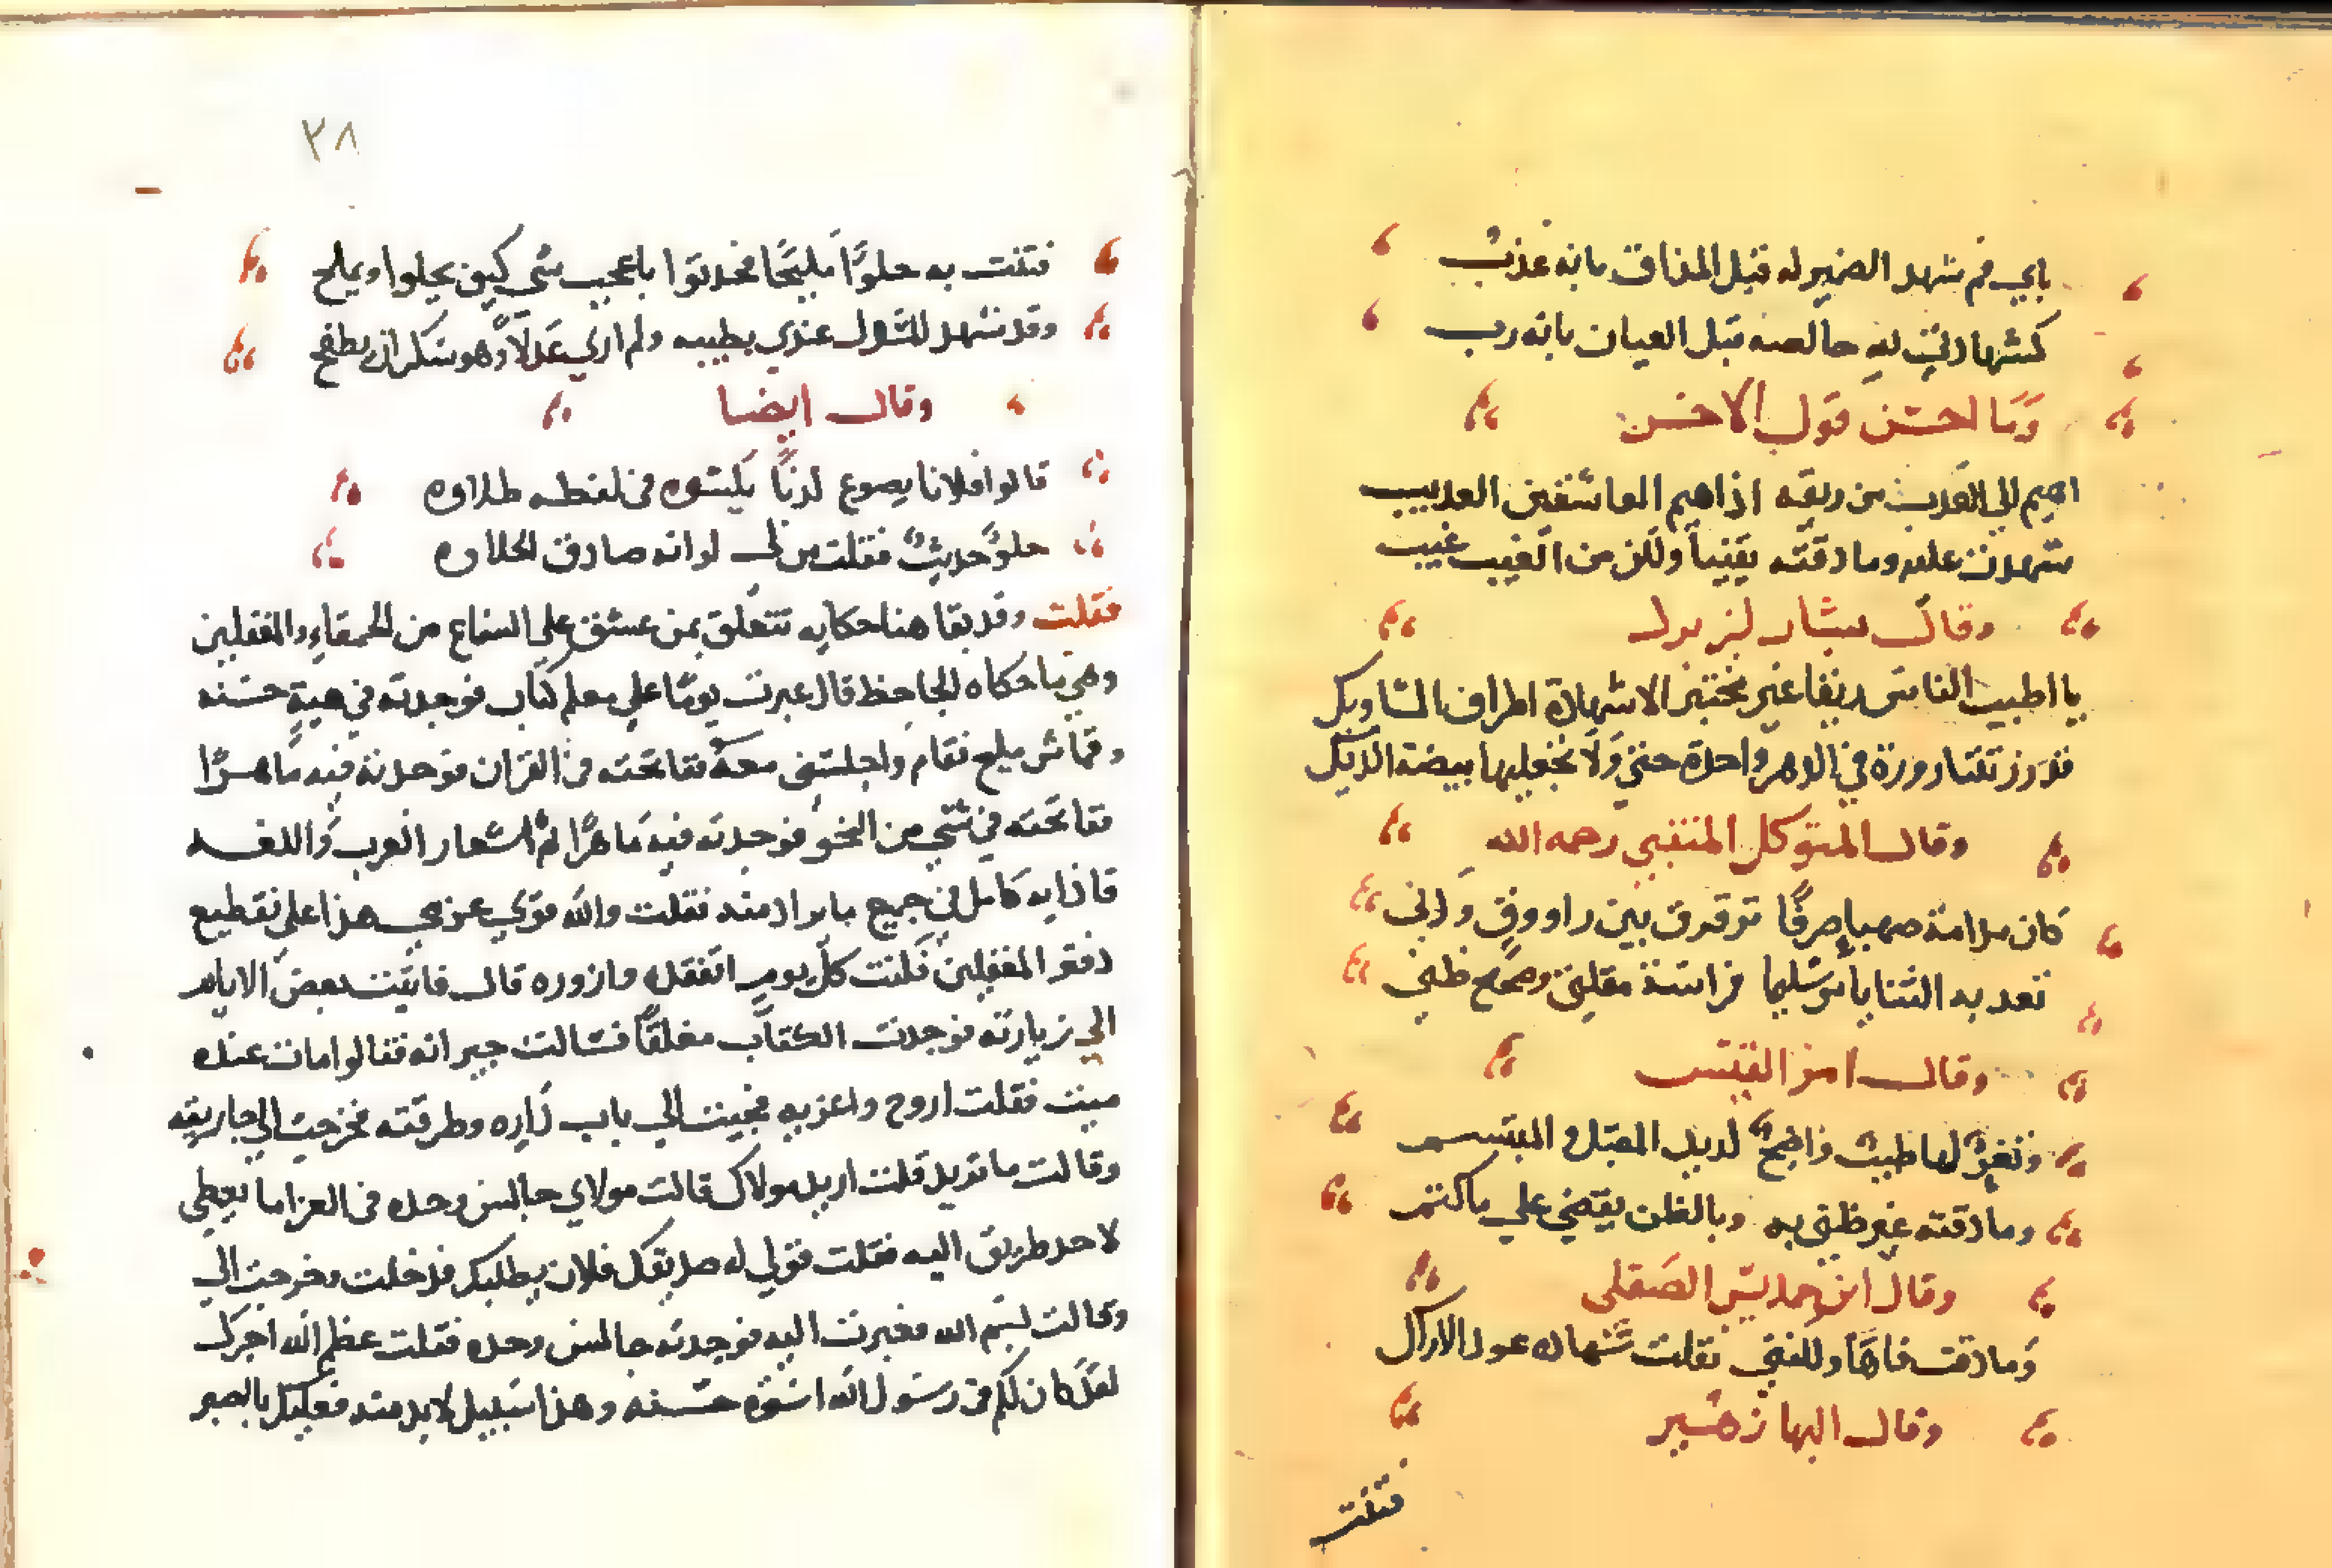 بابي فم شهد الضمير له قبل المذاق بانه عذب
كشهادتي لله خالصه قبل العيان بانه رب
وَمَا احسن قول الاخر
اهيم الي العذب من ريقه اذا هيم العاشقين العذيب
شهدت عليه وما ذقته يقينا ولكن من الغيب غيب
وقال بشار بن برد
يا اطيب الناس ريقا غير مختبر الا شهادة اطراف المساويك
قد زرتنا زورة في الدهر واحدة ثني ولا تجعليها بيضة الديك
وقال المتوكل الليثي رحمه الله
كان مدامة صهباء صرفًا ترقرق بين راووق وَدني
تعد به الثنايا من سليما فراسة مقلتي وصحيح ظني
وقال امرؤ القيس
وثغرٌ لها طيبٌ واضحٌ لذيذ المقبل والمبتسم
وما ذقته غير ظني به وبالظن يقضي علي ما كتم
وقال ابن حمديس الصقلي
وَما ذقت فاهَا وللفتي فقلت شهادة عود الاراك
وقال البها زهير
فتنت
٣٨
فتنت به حلوًا مليحًا فحدثوا باعجب شي كيف يحلوا ويملح
وقد شهد المسواك عندي بطيبه ولم اري عدلًا وهو سكران يطفح
وقال ايضا
قالوا فلانا يصوع لدنًا يكسوه في لفظه طلاوه
حلوٌ حديثٌ فقلت من لي لو انه صادق الحلاوه
فقلت وقد بقا هنا حكايه تتعلق بمن عشق علي السماع من الحمقاء والمغفلين
وهي ما حكاه الجاحظ قال عبرت يومًا علي معلم كتاب فوجدته في هيةٍ حسنه
وقماش مليح فقام واجلسني معه ففاتحته في القران فوجدته فيه ماهرًا
ففاتحته في شي من النحو فوجدته فيه ماهرًا ثم اشعار العرب واللغه
فاذا به كامل في جميع ما يراد منه فقلت والله قوي عزمي هذا علي تقطيع
دفتر المغفلين فكنت كل يوم اتفقده وازوره قال فاتيت بعض الايام
الي زيارته فوجدت الكتاب مغلقًا فسالت جيرانه فقالوا مات عنده
ميت فقلت اروح واعزيه فجيت الي باب داره وطرقته فخرجت الي جاريته
وقالت ما تريد قلت اريد مولاك قالت مولاي جالس وحده في العزا ما يعطي
لاحد طريق اليه فقلت قولي له صديقك فلان يطلبك فدخلت وخرجت الي
وقالت بسم الله فعبرت اليه فوجدته جالس وحده فقلت عظم الله اجرك
لقد كان لكم في رسول الله اسوة حسنه وهذا سبيل لا بد منه فعليك بالصبر